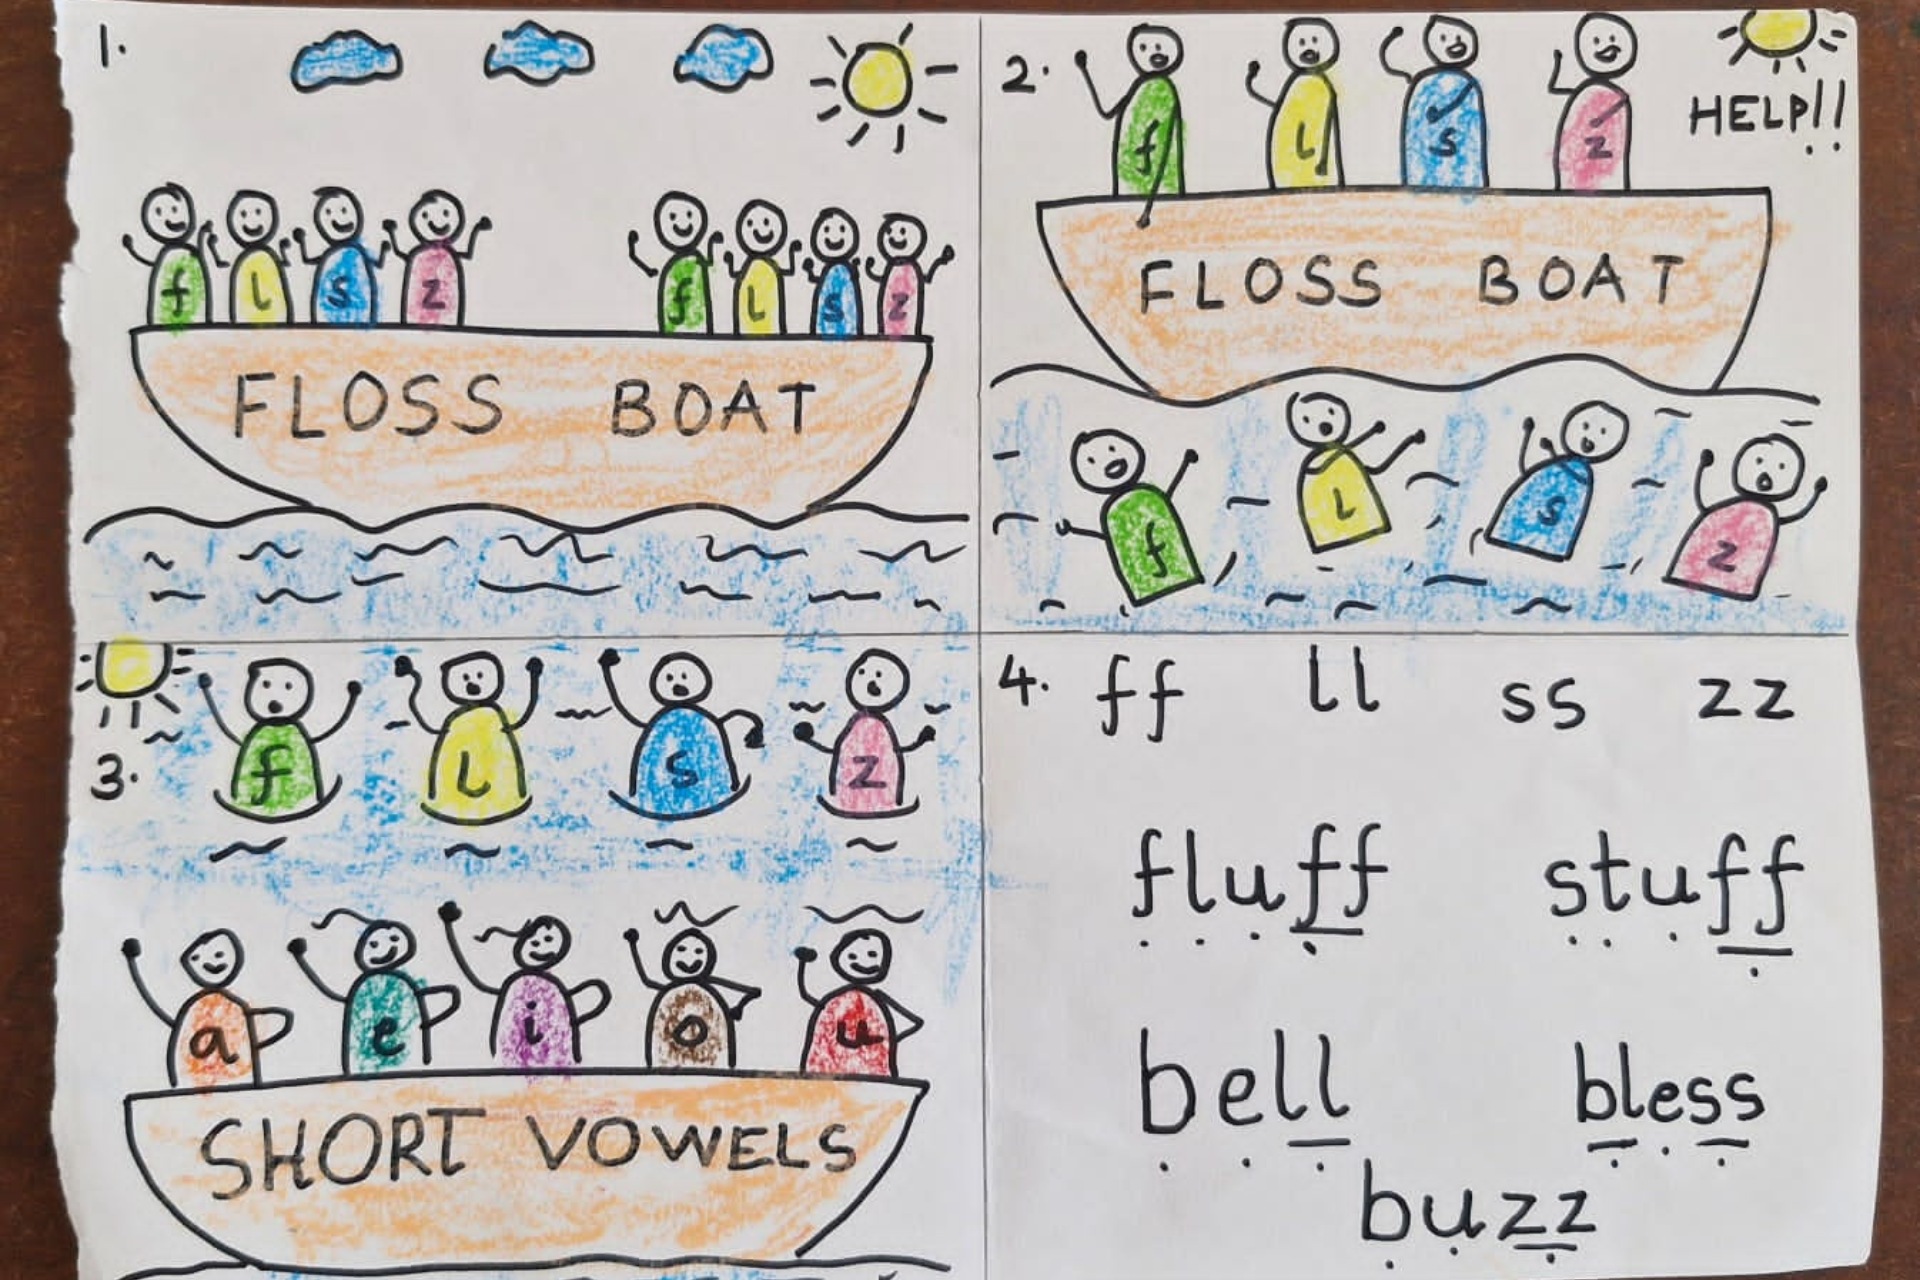 1.
f l s z f l s z
FLOSS BOAT
2.
f l s z
HELP!!
FLOSS BOAT
f l s z
3.
f l s z
a e i o u
SHORT VOWELS
4. ff ll ss zz
fluff stuff
bell bless
buzz